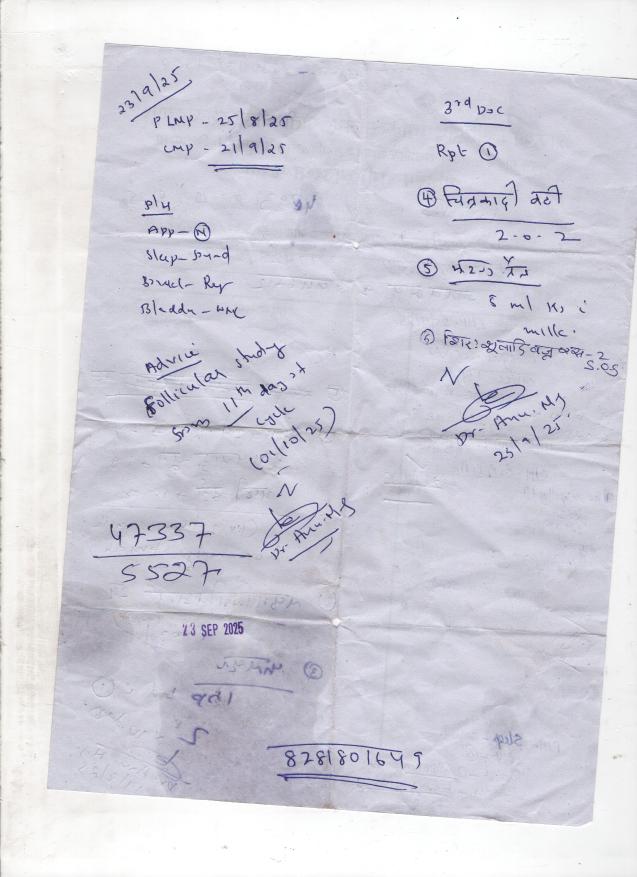 23/9/25
PLMP - 25/8/25
LMP - 21/9/25
App - N
Sleep - Sound
Bowel - Reg
Bladder -
Advice
Follicular study
from 11th day of
cycle
(01/10/25)
Dr. Anu. M.S
47337
5527
23 SEP 2025
3rd Doc
Rpt ①
④ चित्रकादी वटी
2-0-2
⑤
8 ml
milk.
⑥ शिरःशूलादि वज्र रस - 2
S.O.S
Dr. Anu. M.S
23/9/25.
8281801649